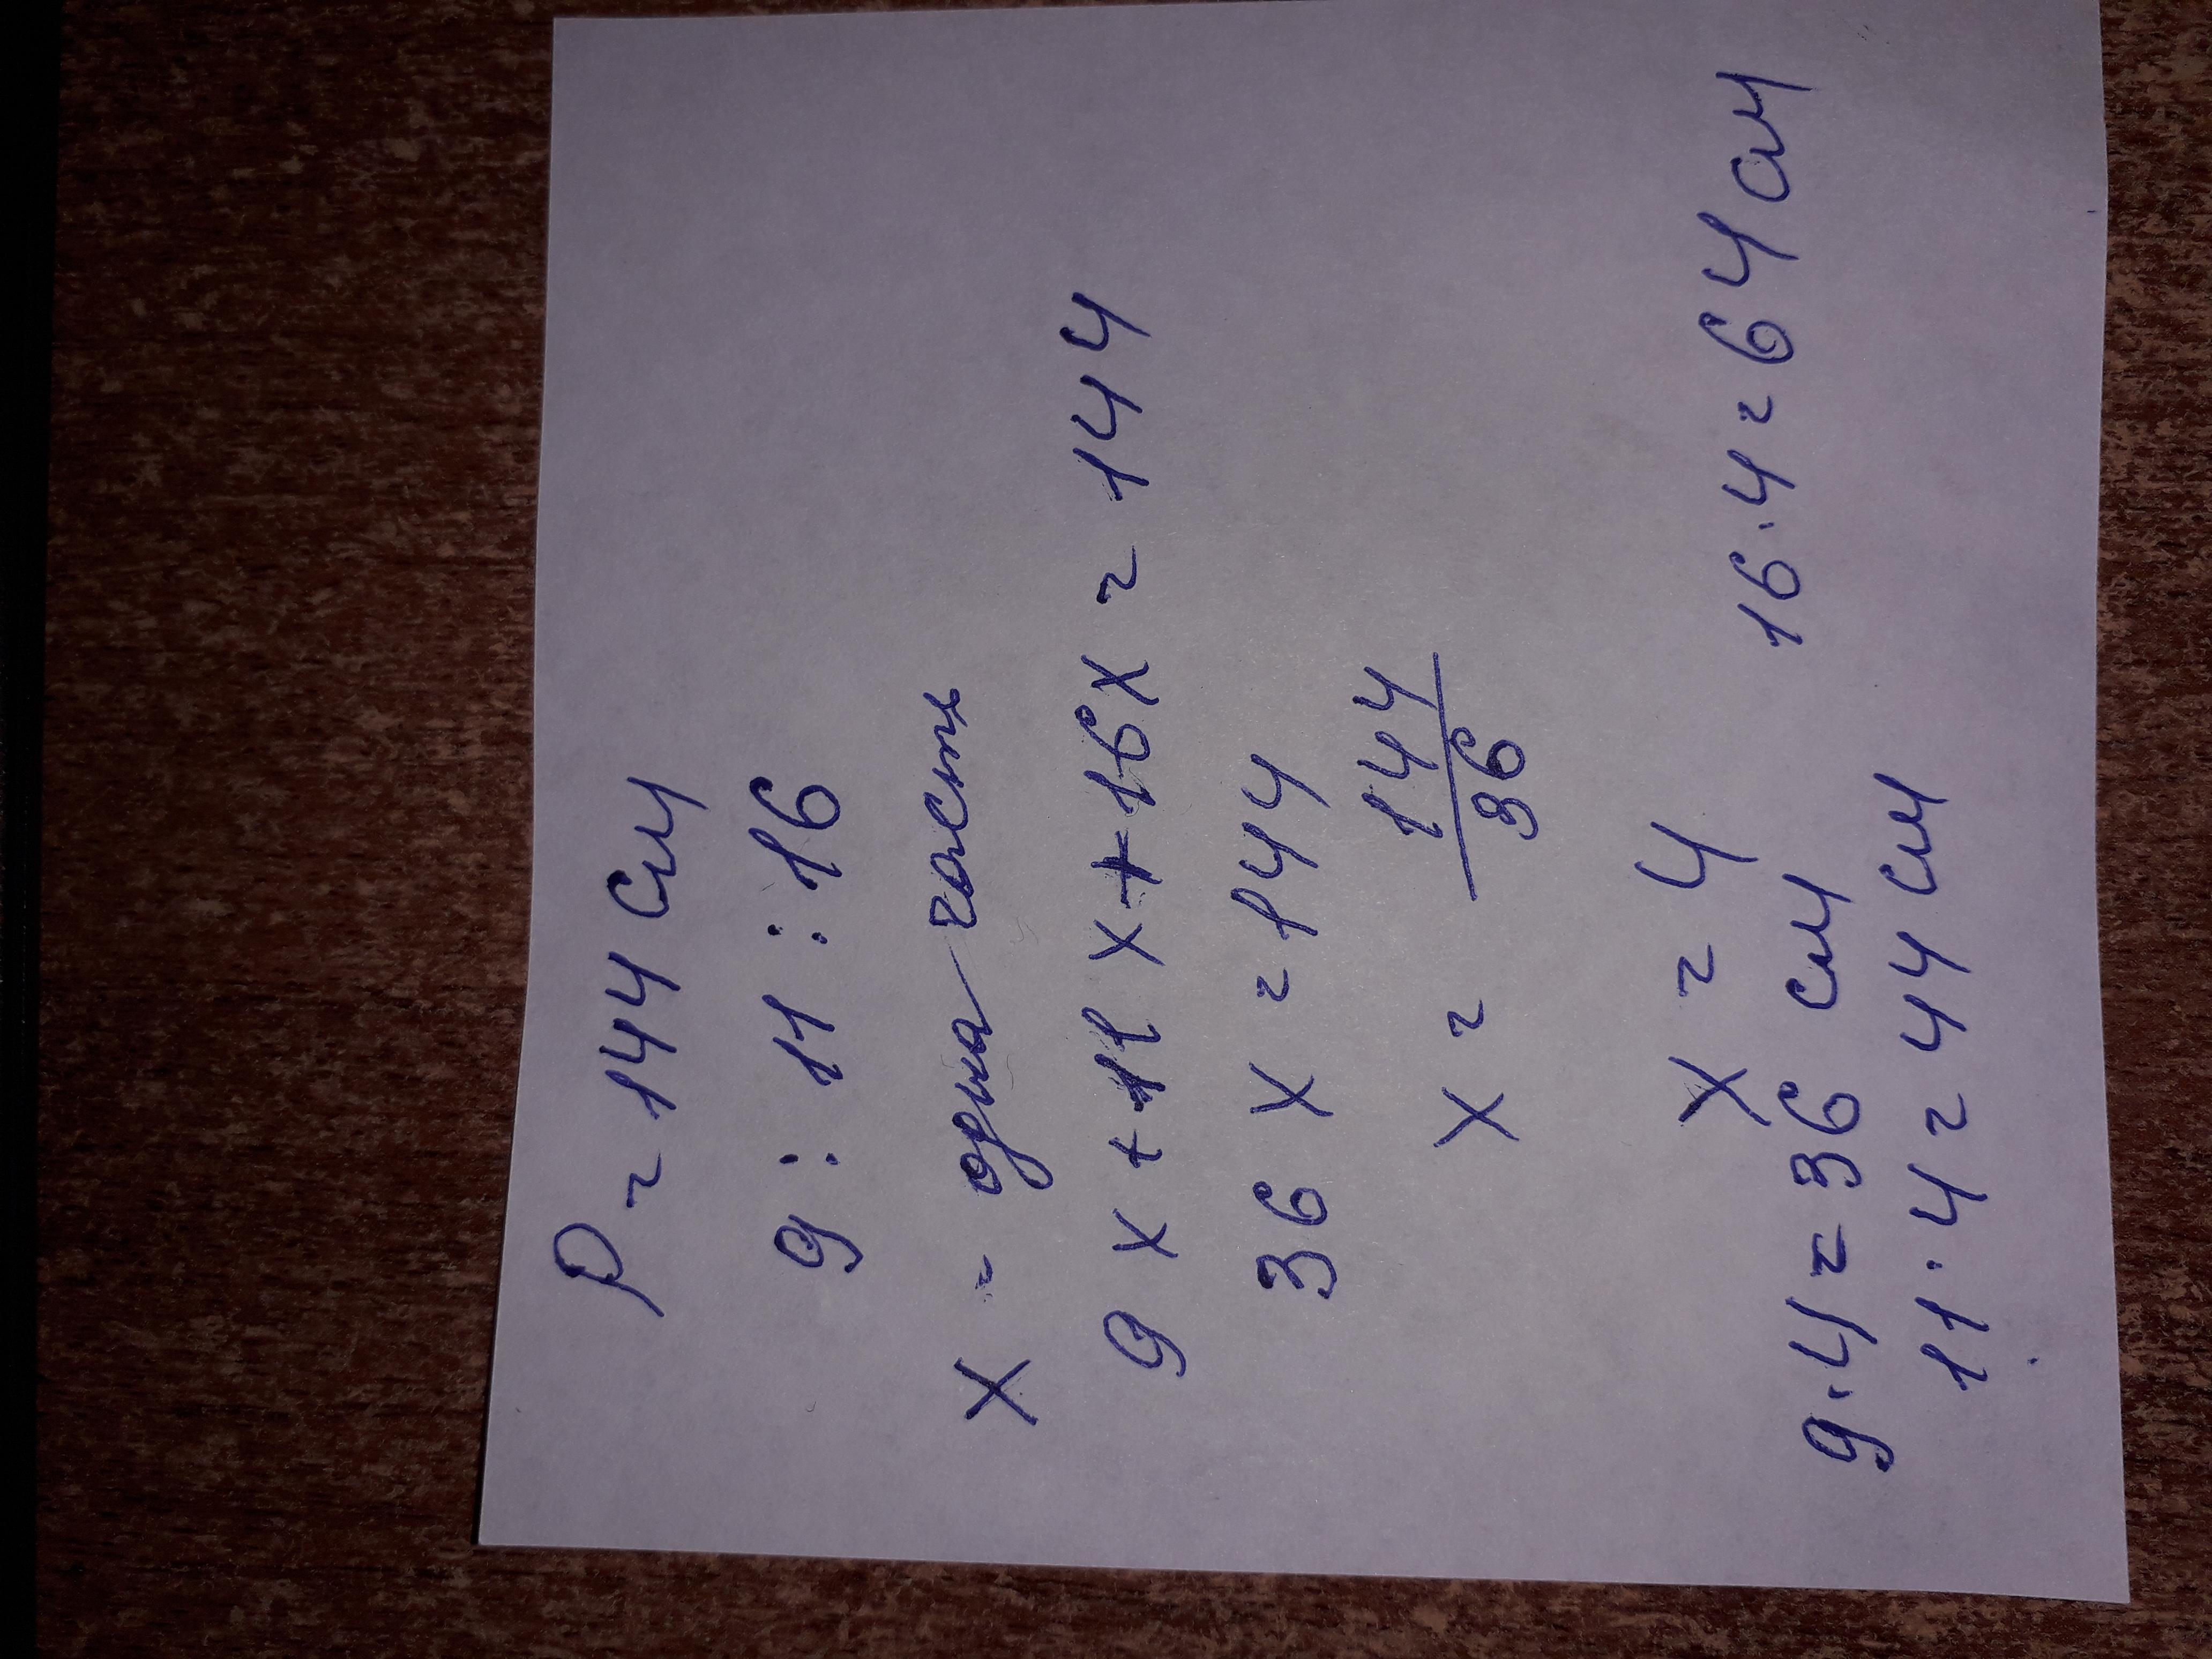 P = 144 см
9 : 11 : 16
x - одна часть
9x + 11x + 16x = 144
36x = 144
x = 144/36
x = 4
9·4 = 36 см 16·4 = 64 см
11·4 = 44 см